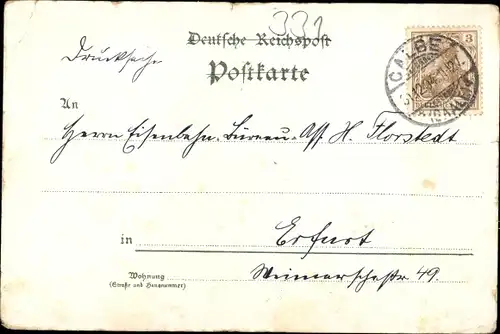 331
Deutsche Reichspost
Postkarte
Drucksache
3
CALBE
(SAALE)
An
Herrn Eisenbahn-Büreau-Ass. H. Florstedt
in Erfurt
Wohnung
(Straße und Hausnummer)
Weimarschestr. 49.